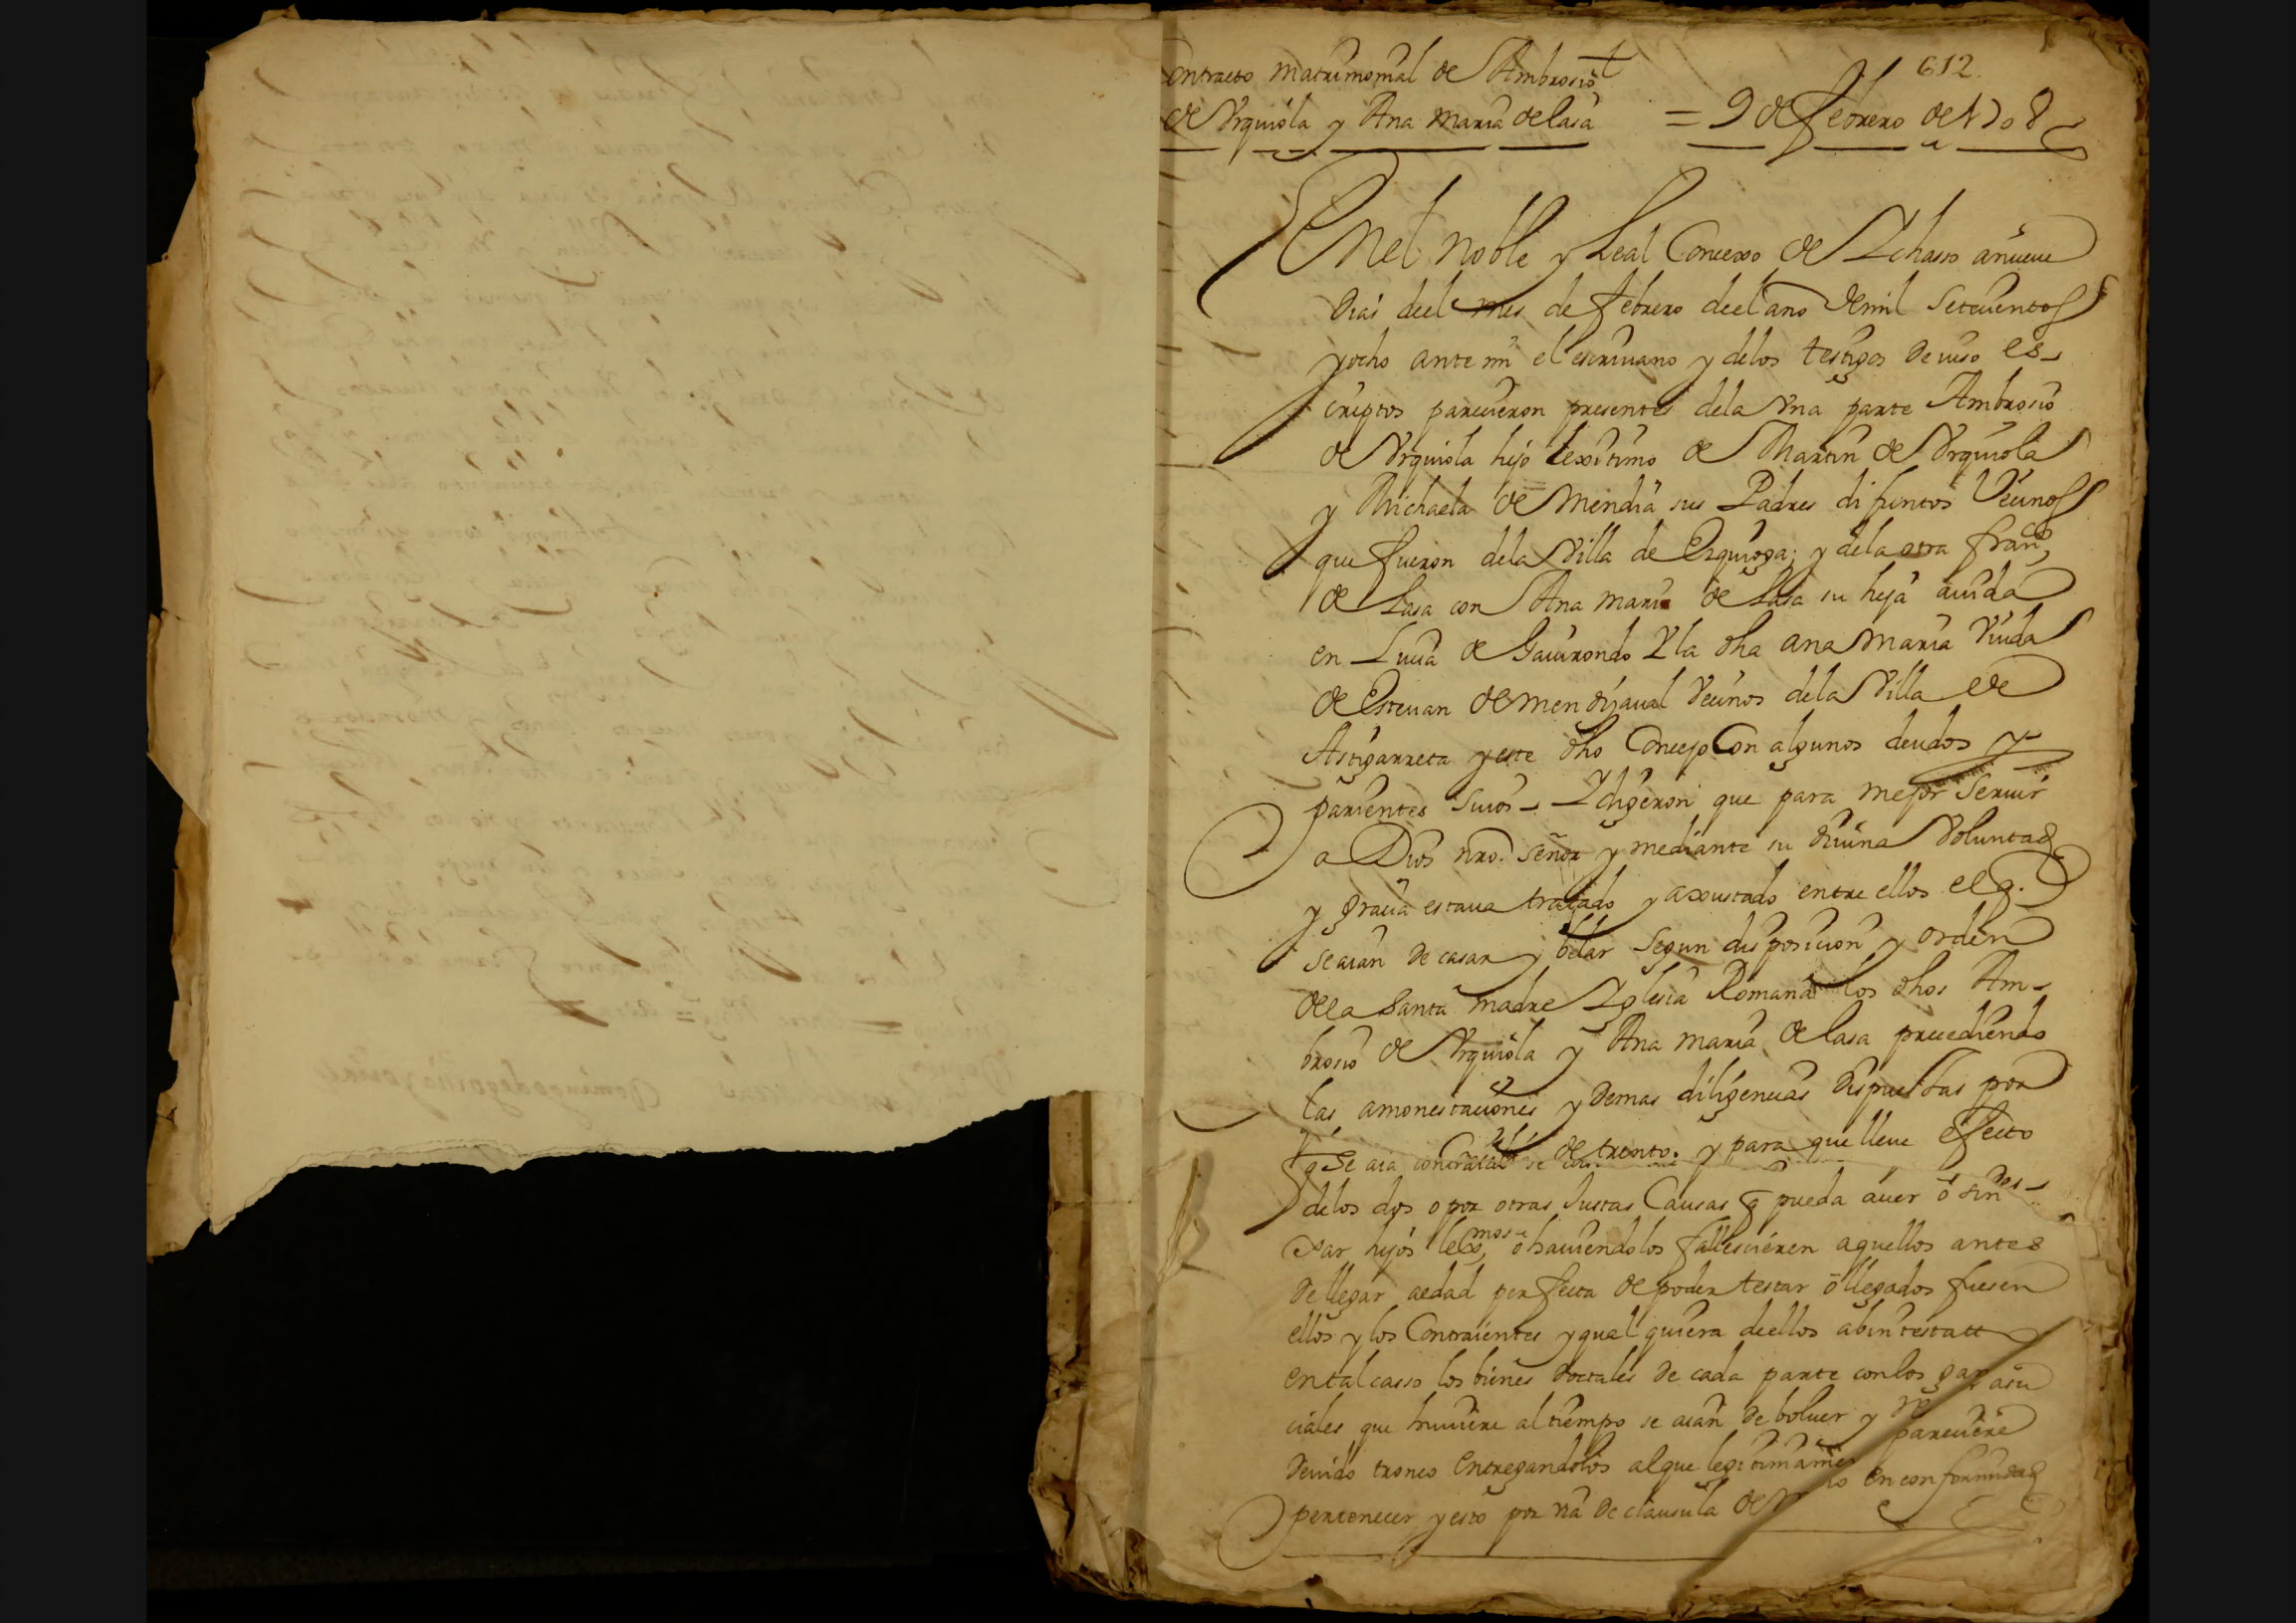 612.
ontracto matrimonial de Ambrosio
de Vrquiola y Ana maria de lasa = 9 de febrero de 1708
En el noble y Leal Concexo de Ichasso anueue
dias deel mes de febrero deel año de mil setecientos
y ocho ante mi el escriuano y delos testigos de iuso es-
criptos parecieron presentes dela vna parte Ambrosio
de Vrquiola hijo lexitimo de Martin de Vrquiola
y Michaela de Mendia sus Padres difuntos Vecinos
que fueron dela Villa de Ezquioga; y dela otra franco
de Lasa con Ana maria de Lasa su hija auida
en Lucia de Gauirondo Y la dha ana maria viuda
de Esteuan de mendizaual vecinos dela Villa de
Astigarreta y este dho Concejo Con algunos deudos y
parientes suios - Y digeron que para mejor seruir
a Dios nro. señor y mediante su diuina Voluntad
y gracia estaua tratado y axustado entre ellos el q.
se aian de casar y belar segun disposicion y orden
de la santa madre Yglesia Romana los dhos Am-
brosio de Vrquiola y Ana maria de lasa precediendo
las amonestaciones y demas diligencias dispuestas por
de trento. y para que lleue efecto
delos dos o por otras Justas Causas q pueda auer ô sin des-
xar hijos lexmos, ô hauiendolos fallescieren aquellos antes
de llegar aedad perfecta de poder testar ô llegados fuesen
ellos y los Contraientes y qualquiera deellos abintestatt
en tal casso los bienes doctales de cada parte con los ganan
ciales que huuiere al tiempo se aian de boluer y asu
deuido tronco entregandolos al que legitimame pareciere
pertenecer y esto por via de clausula de en conformidad